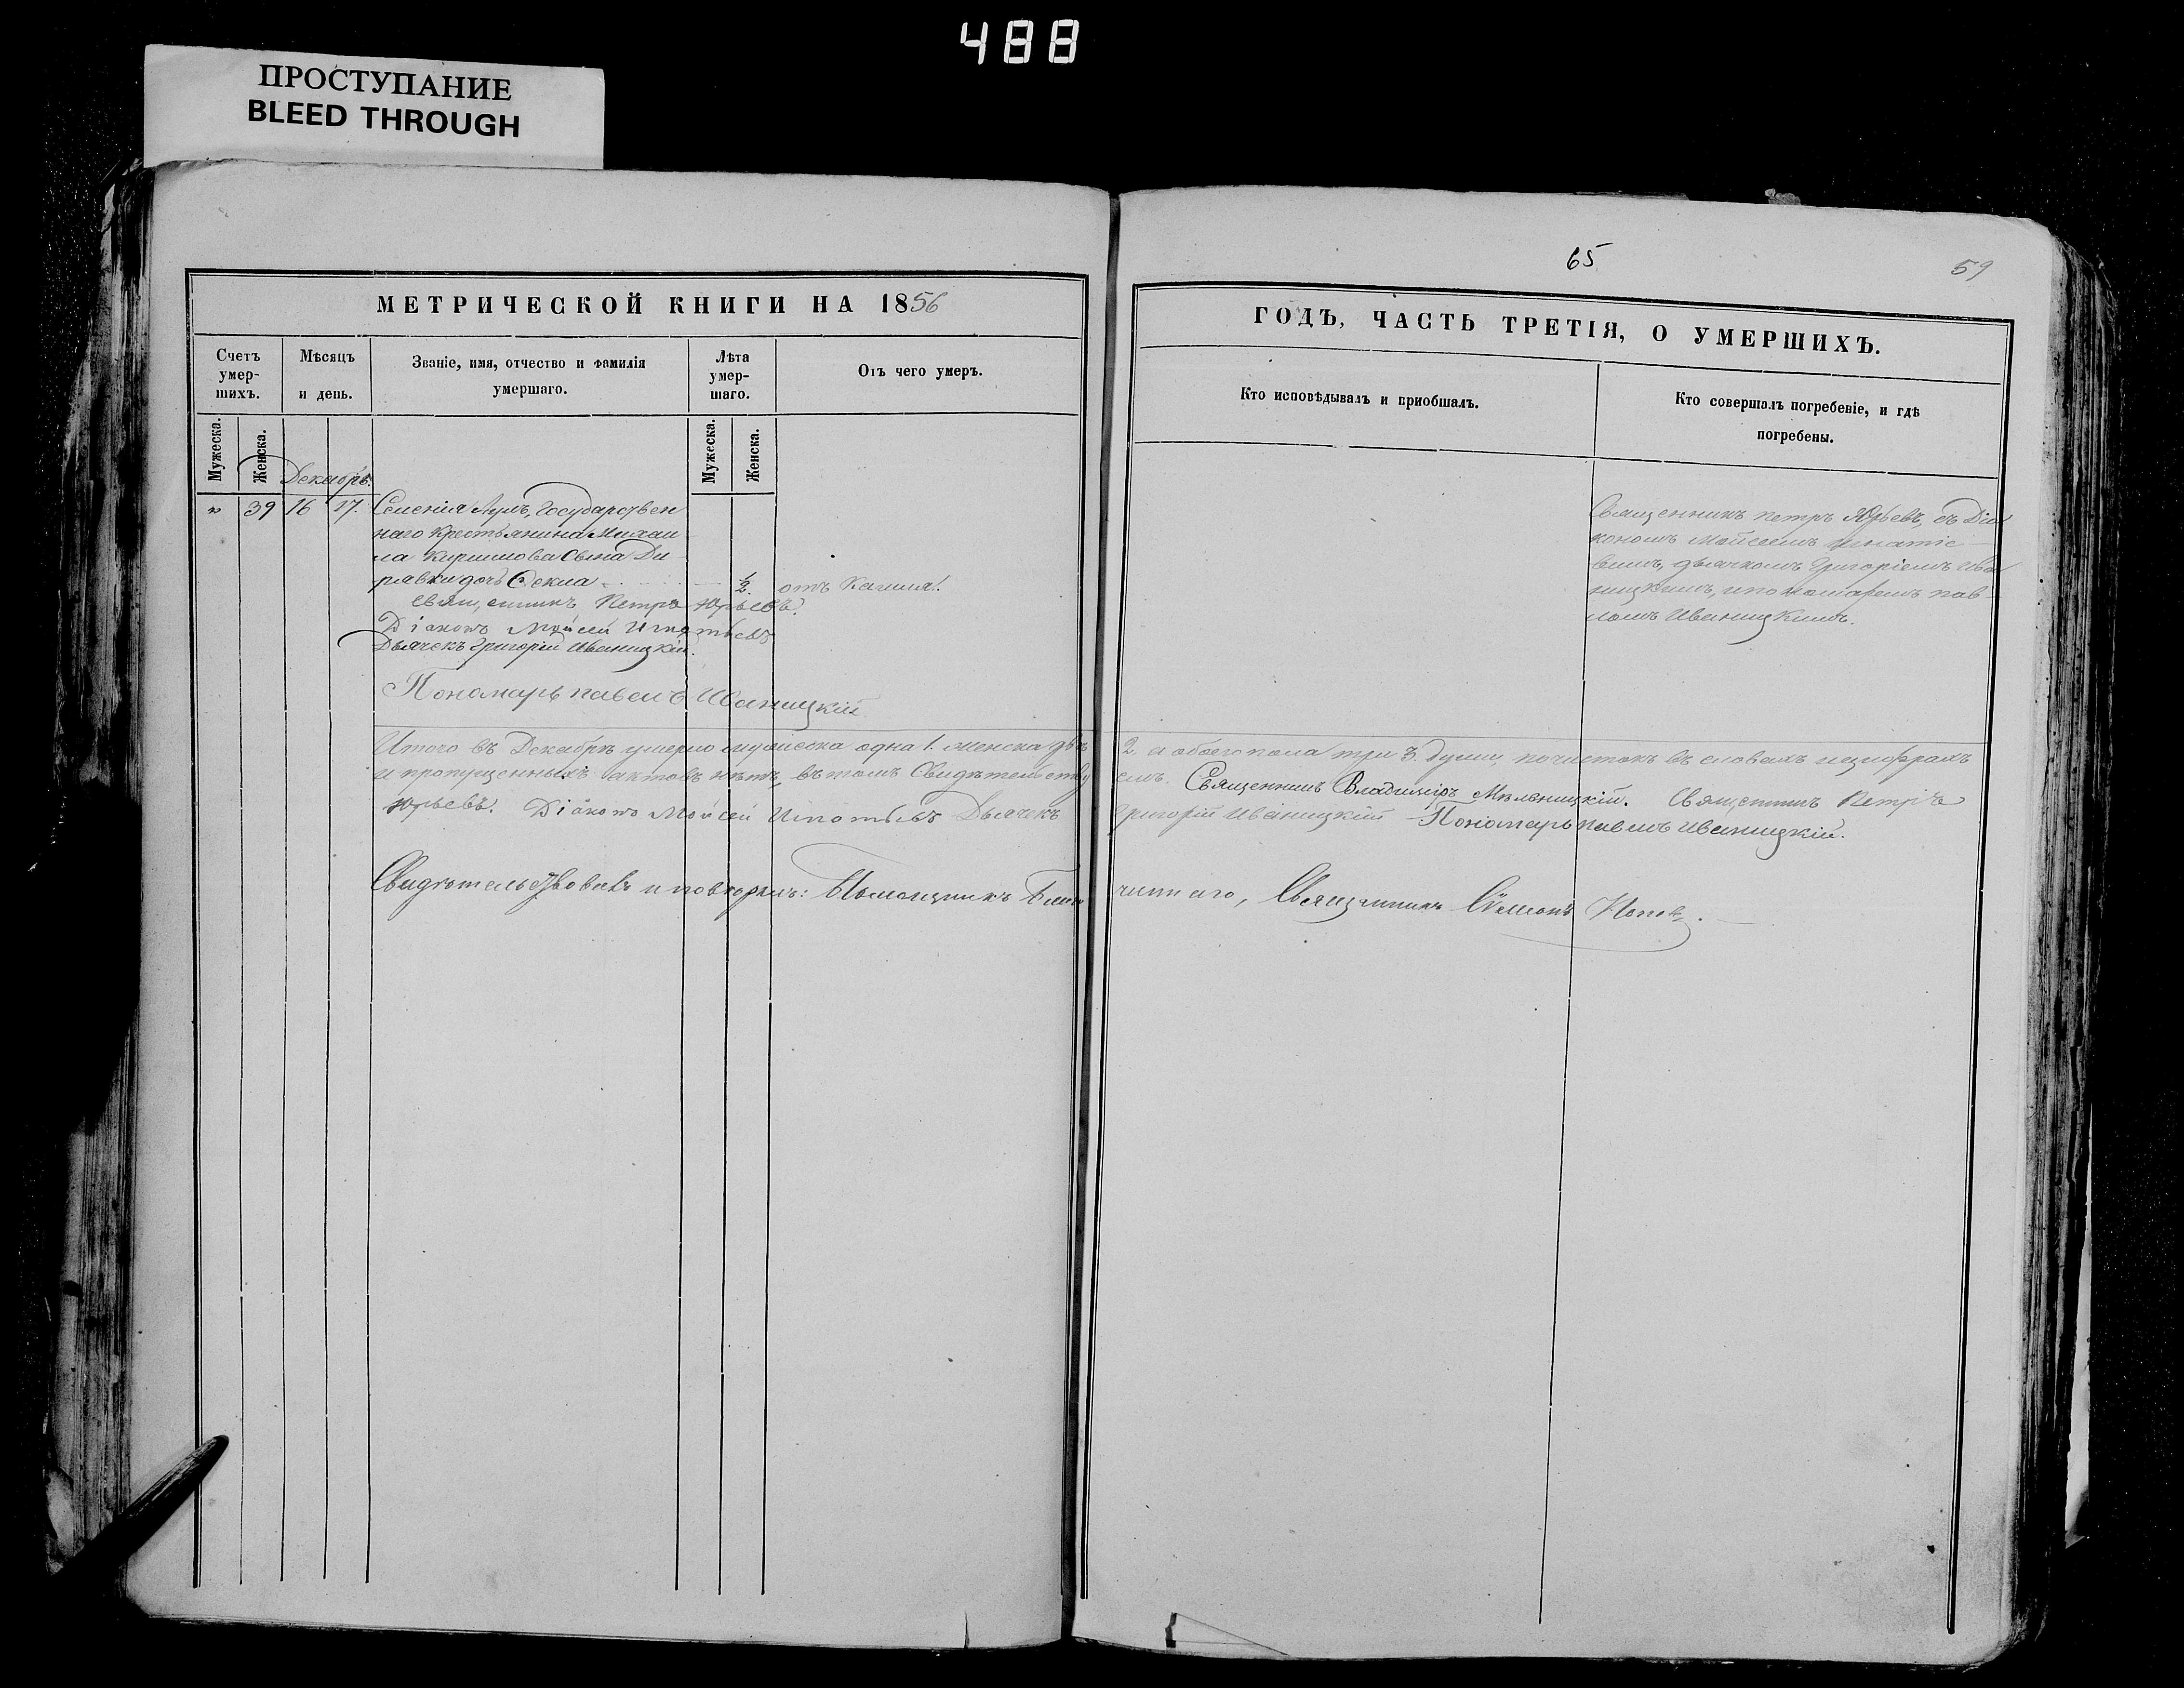 488
ПРОСТУПАНИЕ
BLEED THROUGH
65
59
МЕТРИЧЕСКОЙ КНИГИ НА 1856
ГОДЪ, ЧАСТЬ ТРЕТІЯ, О УМЕРШИХЪ.
Счетъ умер-шихъ.
Мѣсяцъ и день.
Званіе, имя, отчество и фамилія умершаго.
Лѣта умер-шаго.
Отъ чего умеръ.
Кто исповѣдывалъ и пріобщалъ.
Кто совершалъ погребеніе, и гдѣ погребены.
Мужеска.
Женска.
Мужеска.
Женска.
Декабрь.
39 16 17. Селенія Государствен
наго крестьянина Михаи
ла Кирилова сына Ди
равки дочь Ѳекла
1/2. отъ Кашля.
Священникъ Петръ Юрьевъ.
Діаконъ Мойсей Игнатьевъ
Дьячекъ Григорій Иваницкій.
Пономарь Павелъ Иваницкій
Священникъ Петръ Юрьевъ, съ Діа
кономъ Мойсеемъ Игнатіе
вымъ, дьячкомъ Григоріемъ Ива
ницкимъ, и пономаремъ Пав
ломъ Иваницкимъ.
Итого въ Декабрѣ умерло мужеска одна 1. женска двѣ 2 а обоего пола три 3. души, почистокъ въ словахъ и цифрахъ
и пропущенныхъ актовъ нѣтъ, въ томъ Свидѣтельству емъ. Священникъ Владиміръ Мѣльницкій. Священникъ Петръ
Юрьевъ. Діаконъ Мойсей Игнатьевъ Дьячекъ Григорій Иваницкій Пономарь Павелъ Иваницкій.
Свидѣтельствовалъ и повѣрялъ: Помощникъ Благочиннаго, Священникъ Сѵмеонъ